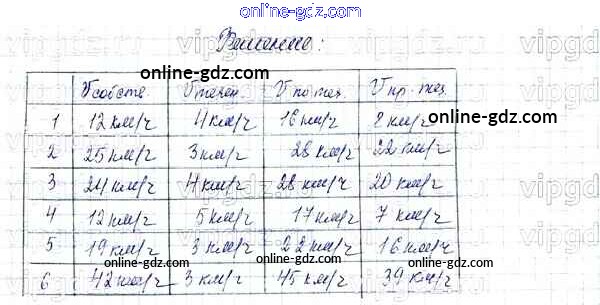 online-gdz.com
Решение:
online-gdz.com
Vсобств Vтечен. Vпо теч. Vпр. теч.
online-gdz.com
1 12 км/ч 4 км/ч 16 км/ч 8 км/ч
2 25 км/ч 3 км/ч 28 км/ч 22 км/ч
online-gdz.com
3 24 км/ч 4 км/ч 28 км/ч 20 км/ч
4 12 км/ч 5 км/ч 17 км/ч 7 км/ч
5 19 км/ч 3 км/ч 22 км/ч 16 км/ч
online-gdz.com
6 42 км/ч 3 км/ч 45 км/ч 39 км/ч
online-gdz.com